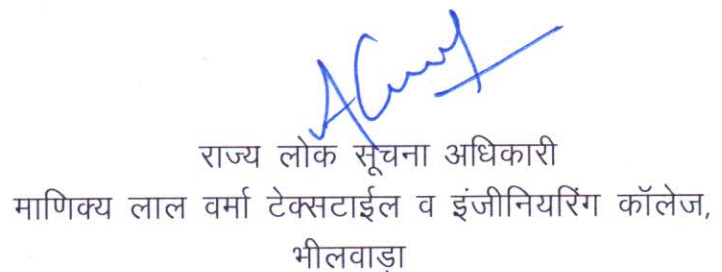 राज्य लोक सूचना अधिकारी
माणिक्य लाल वर्मा टेक्सटाईल व इंजीनियरिंग कॉलेज,
भीलवाडा